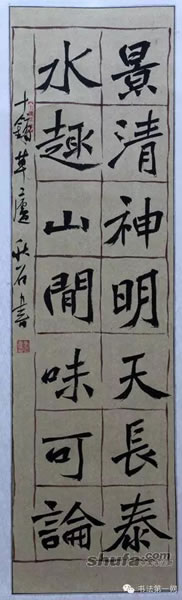 景清神明天長泰
水趣山間味可論
草
秋石書
shufa.com
书法第一网